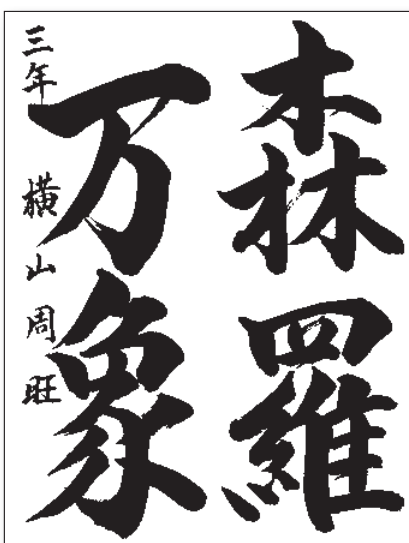 森羅
万象
三年 横山周旺